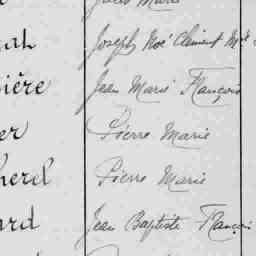 Jules Marie
ah Joseph Noé Clément
ière Jean Marie François
er Pierre Marie
herel Pierre Marie
ard Jean Baptiste François